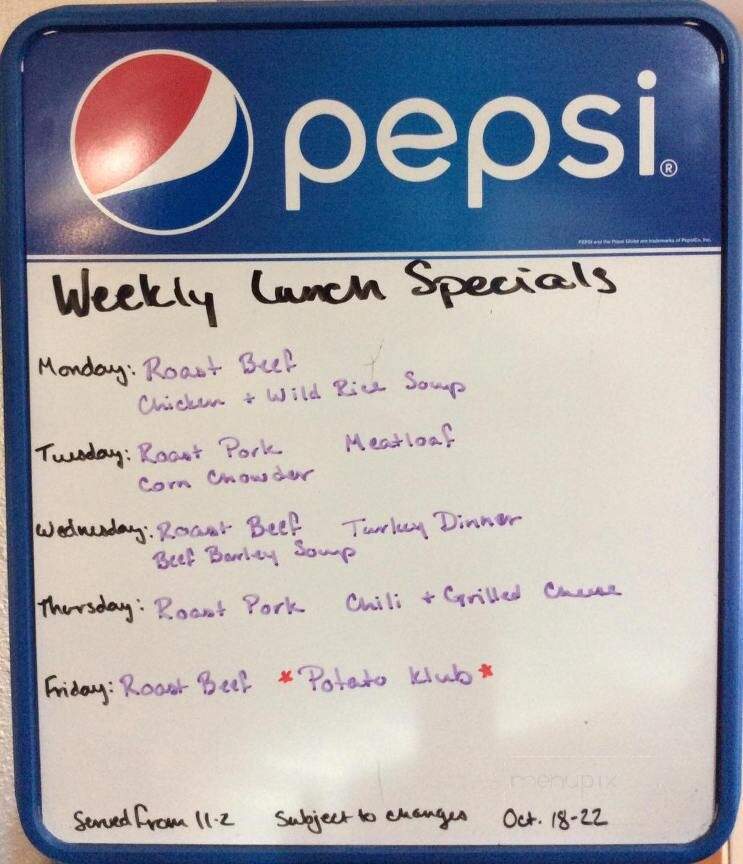 pepsi®
PEPSI and the Pepsi Globe are trademarks of PepsiCo, Inc.
Weekly Lunch Specials
Monday: Roast Beef
Chicken + Wild Rice Soup
Tuesday: Roast Pork Meatloaf
Corn Chowder
Wednesday: Roast Beef Turkey Dinner
Beef Barley Soup
Thursday: Roast Pork Chili + Grilled Cheese
Friday: Roast Beef * Potato klub *
menupix
Served from 11-2 Subject to changes Oct. 18-22